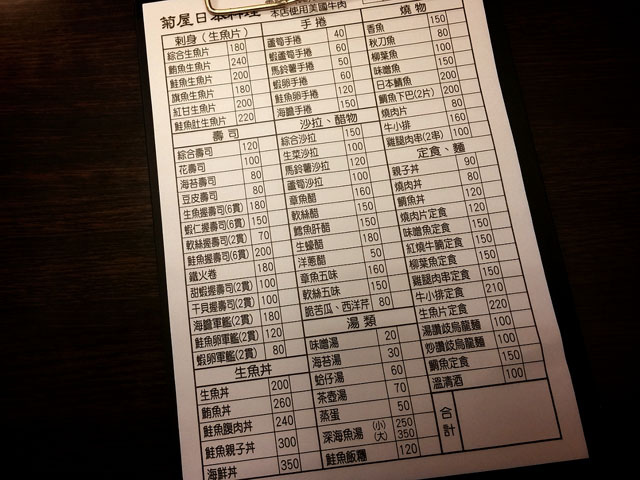 菊屋日本料理 本店使用美國牛肉
刺身(生魚片)
綜合生魚片 180
鮪魚生魚片 240
鮭魚生魚片 200
旗魚生魚片 180
紅甘生魚片 200
鮭魚肚生魚片 220
壽司
綜合壽司 120
花壽司 100
海苔壽司 80
豆皮壽司 80
生魚握壽司(6貫) 180
蝦仁握壽司(6貫) 150
軟絲握壽司(2貫) 70
鮭魚握壽司(6貫) 200
鐵火卷 180
甜蝦握壽司(2貫) 100
干貝握壽司(2貫) 100
海膽軍艦(2貫) 180
鮭魚卵軍艦(2貫) 120
蝦卵軍艦(2貫) 80
生魚丼
生魚丼 200
鮪魚丼 260
鮭魚腹肉丼 240
鮭魚親子丼 300
海鮮丼 350
手捲
蘆筍手捲 40
蝦蘆筍手捲 60
馬鈴薯手捲 50
蝦卵手捲 60
鮭魚卵手捲 120
海膽手捲 150
沙拉、醋物
綜合沙拉 150
生菜沙拉 100
馬鈴薯沙拉 120
蘆筍沙拉 100
章魚醋 150
軟絲醋 150
鱈魚肝醋 150
生蠔醋 180
洋蔥醋 50
章魚五味 160
軟絲五味 150
脆苦瓜、西洋芹 80
湯類
味噌湯 20
海苔湯 30
蛤仔湯 60
茶壺湯 70
蒸蛋 50
深海魚湯 (小) 250
(大) 350
鮭魚飯糰 120
燒物
香魚 150
秋刀魚 80
柳葉魚 100
味噌魚 150
日本鯖魚 150
鯛魚下巴(2片) 200
燒肉片 80
牛小排 160
雞腿肉串(2串) 100
定食、麵
親子丼 90
燒肉丼 80
鯛魚丼 120
燒肉片定食 120
味噌魚定食 150
紅燒牛腩定食 120
柳葉魚定食 150
雞腿肉串定食 160
牛小排定食 210
生魚片定食 220
湯讚歧烏龍麵 100
炒讚歧烏龍麵 100
鯛魚定食 150
溫清酒 100
合計